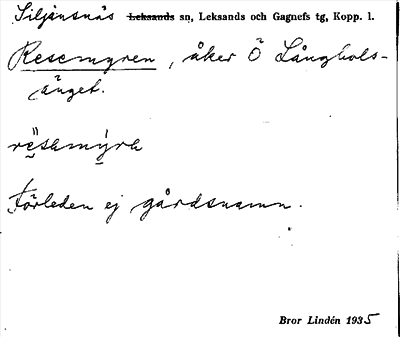 Siljansnäs Leksands sn, Leksands och Gagnefs tg, Kopp. l.
Resemyren, åker Ö Långhols-
änget.
Förleden ej gårdsnamn.
Bror Lindén 1935